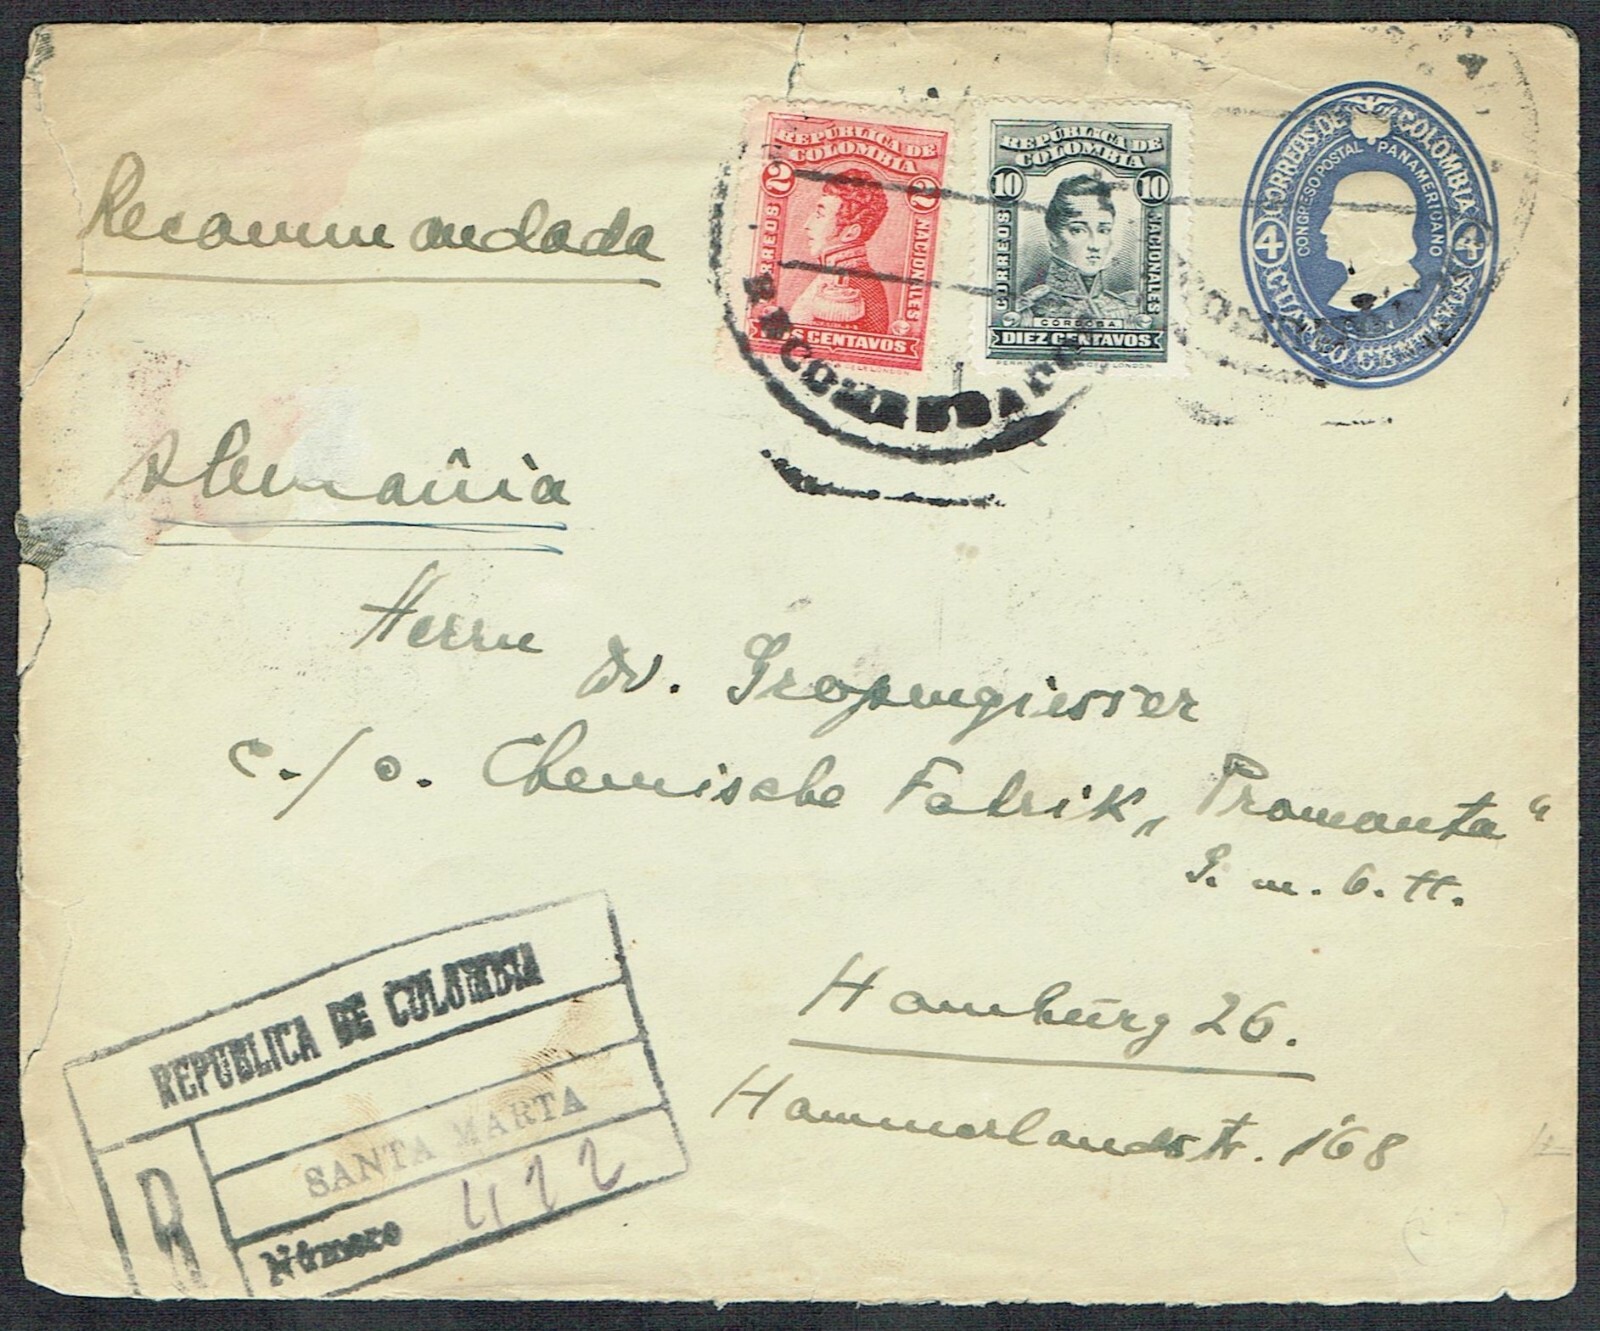 Recommandada
REPÚBLICA DE
COLOMBIA
2 2
CORREOS NACIONALES
DOS CENTAVOS
REPÚBLICA DE
COLOMBIA
10 10
CORREOS NACIONALES
CÓRDOBA
DIEZ CENTAVOS
CORREOS DE COLOMBIA
CONGRESO POSTAL PANAMERICANO
4 4
CUATRO CENTAVOS
RECOMENDADO
Alemânia
Herrn
Dr. Gropengiesser
c./o. Chemische Fabrik „Promonta“
G. m. b. H.
Hamburg 26.
Hammerlandstr. 168
REPUBLICA DE COLOMBIA
SANTA MARTA
R
Número 422